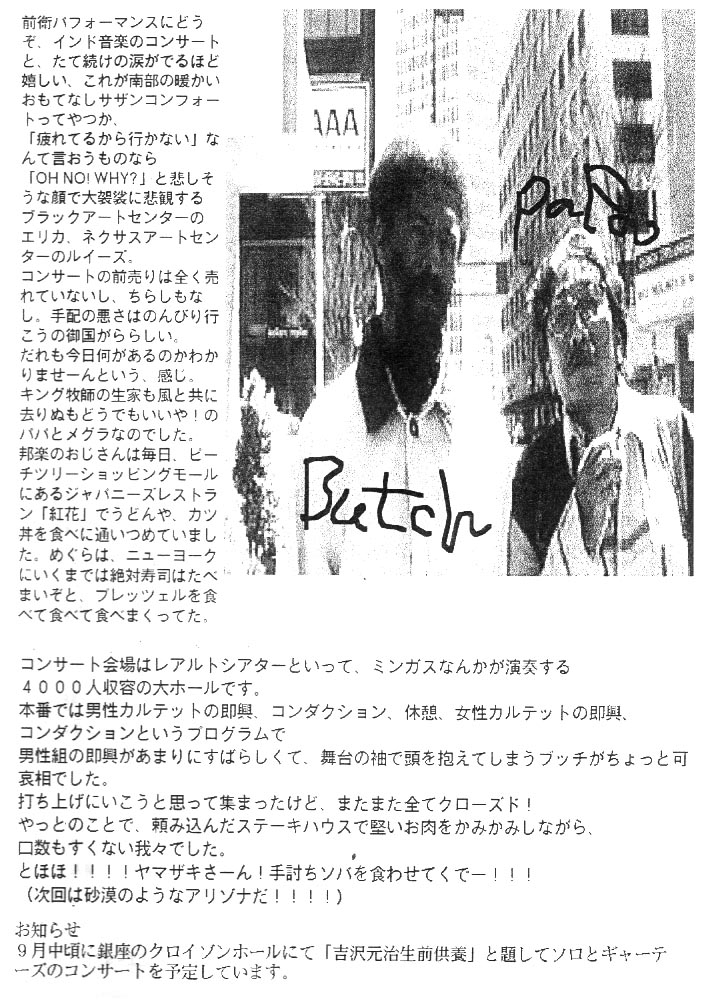 前衛パフォーマンスにどう
ぞ、インド音楽のコンサート
と、たて続けの涙がでるほど
嬉しい、これが南部の暖かい
おもてなしサザンコンフォー
トってやつか、
「疲れてるから行かない」な
んて言おうものなら
「OH NO! WHY?」と悲しそ
うな顔で大袈裟に悲観する
ブラックアートセンターの
エリカ、ネクサスアートセン
ターのルイーズ。
コンサートの前売りは全く売
れていないし、ちらしもな
し。手配の悪さはのんびり行
こうの御国がららしい。
だれも今日何があるのかわか
りませーんという、感じ。
キング牧師の生家も風と共に
去りぬもどうでもいいや！の
ババとメグラなのでした。
邦楽のおじさんは毎日、ピー
チツリーショッピングモール
にあるジャパニーズレストラ
ン「紅花」でうどんや、カツ
丼を食べに通いつめていまし
た。めぐらは、ニューヨーク
にいくまでは絶対寿司はたべ
まいぞと、プレッツェルを食
べて食べて食べまくってた。
AAA
Butch
コンサート会場はレアルトシアターといって、ミンガスなんかが演奏する
４０００人収容の大ホールです。
本番では男性カルテットの即興、コンダクション、休憩、女性カルテットの即興、
コンダクションというプログラムで
男性組の即興があまりにすばらしくて、舞台の袖で頭を抱えてしまうブッチがちょっと可
哀相でした。
打ち上げにいこうと思って集まったけど、またまた全てクローズド！
やっとのことで、頼み込んだステーキハウスで堅いお肉をかみかみしながら、
口数もすくない我々でした。
とほほ！！！！ヤマザキさーん！手討ちソバを食わせてくでー！！！
（次回は砂漠のようなアリゾナだ！！！！）
お知らせ
９月中頃に銀座のクロイゾンホールにて「吉沢元治生前供養」と題してソロとギャーテ
ーズのコンサートを予定しています。